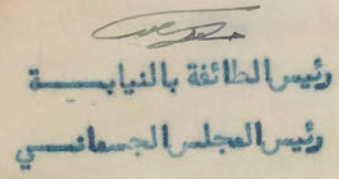 رئيس الطائفة بالنيابـــــة
رئيس المجلس الجسمانـــي